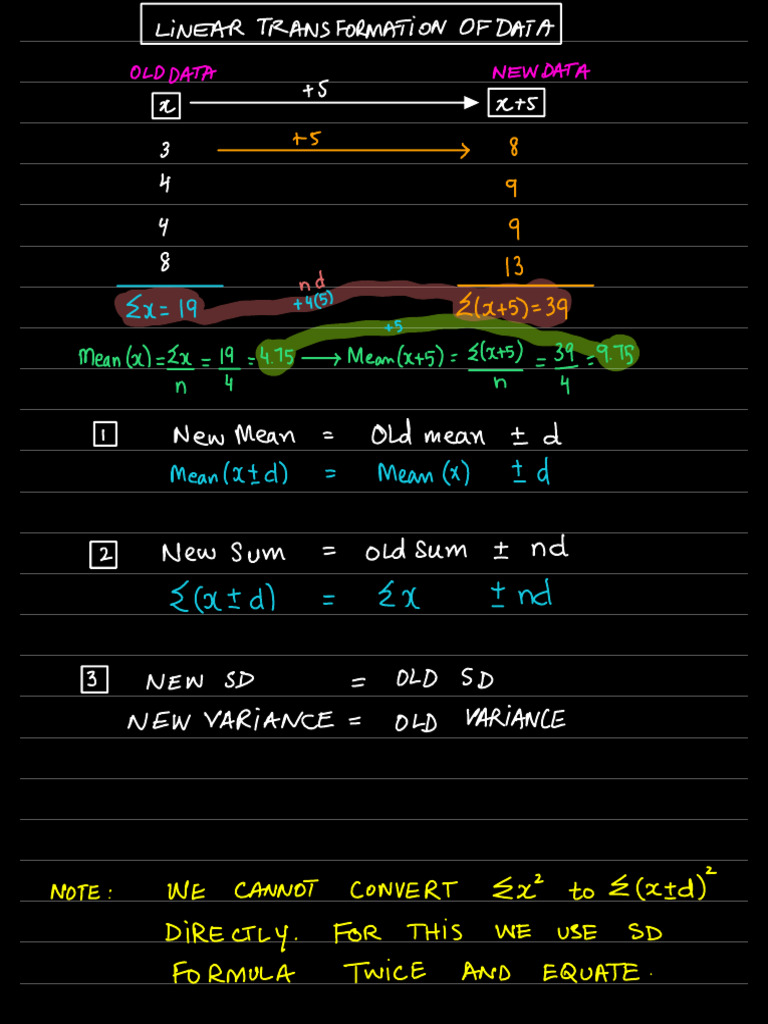 LINEAR TRANSFORMATION OF DATA
OLD DATA NEW DATA
x +5 x+5
3 +5 8
4 9
4 9
8 13
Σx = 19 nd +4(5) Σ(x+5) = 39
+5
Mean(x) = Σx/n = 19/4 = 4.75 → Mean(x+5) = Σ(x+5)/n = 39/4 = 9.75
1 New Mean = Old mean ± d
Mean(x±d) = Mean(x) ± d
2 New Sum = Old Sum ± nd
Σ(x±d) = Σx ± nd
3 NEW SD = OLD SD
NEW VARIANCE = OLD VARIANCE
NOTE: WE CANNOT CONVERT Σx² to Σ(x±d)²
DIRECTLY. FOR THIS WE USE SD
FORMULA TWICE AND EQUATE.